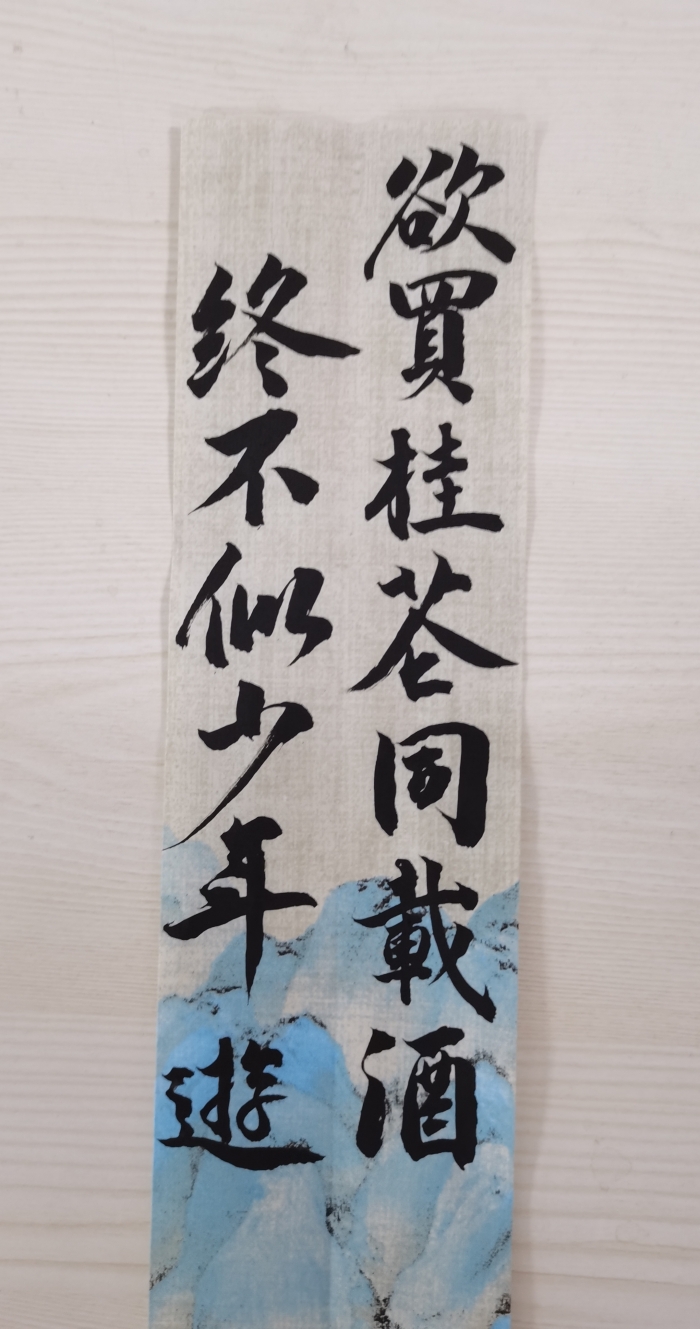 欲買桂花同載酒
终不似少年遊